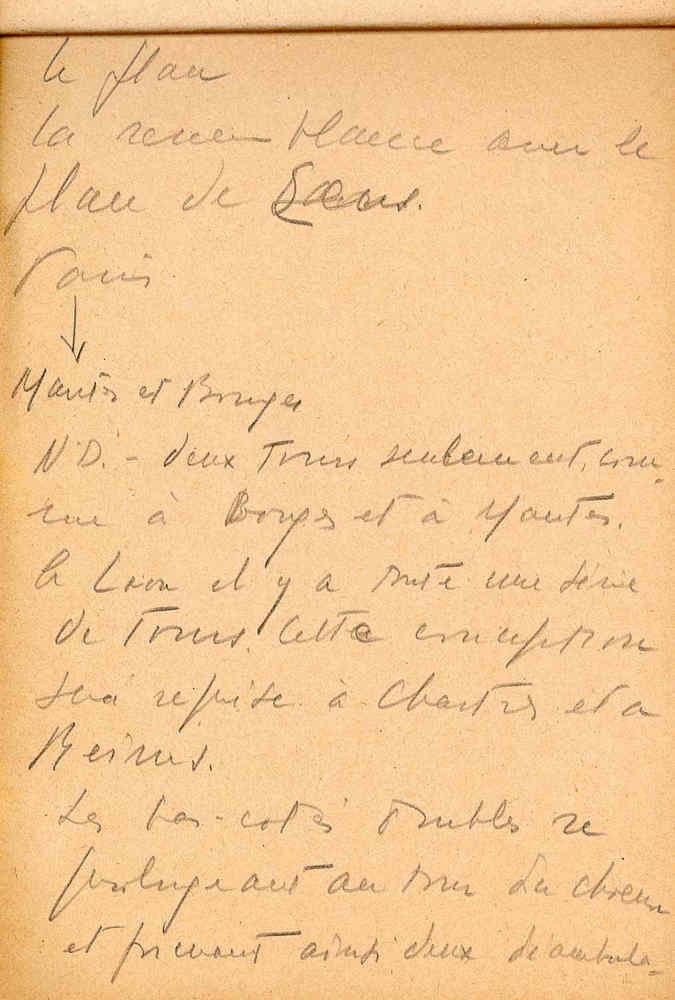 le plan
la ressemblance avec le
plan de Sens.
Paris
↓
Mantes et Bourges
N.D. - deux Tours seulement, com-
me à Bourges et à Mantes.
A Laon il y a toute une série
de Tours. Cette conception
sera reprise à Chartres et à
Reims.
Les bas-cotés doubles se
prolongeant au tour du choeur
et formant ainsi deux déambula-